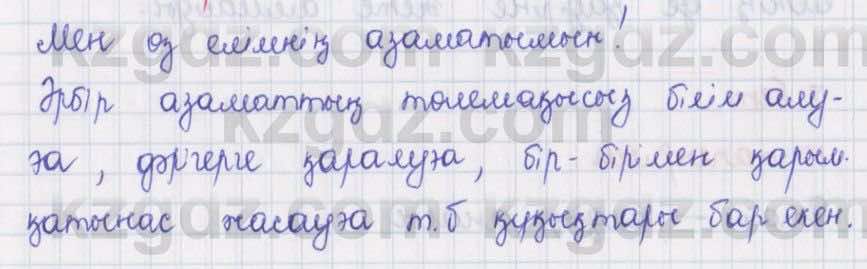 Мен өз елімнің азаматымын!
Әрбір азаматтың төлемақысыз білім алу-
ға, дәрігерге қаралуға, бір-бірімен қарым.
қатынас жасауға т.б құқықтары бар екен.
kzgdz.com